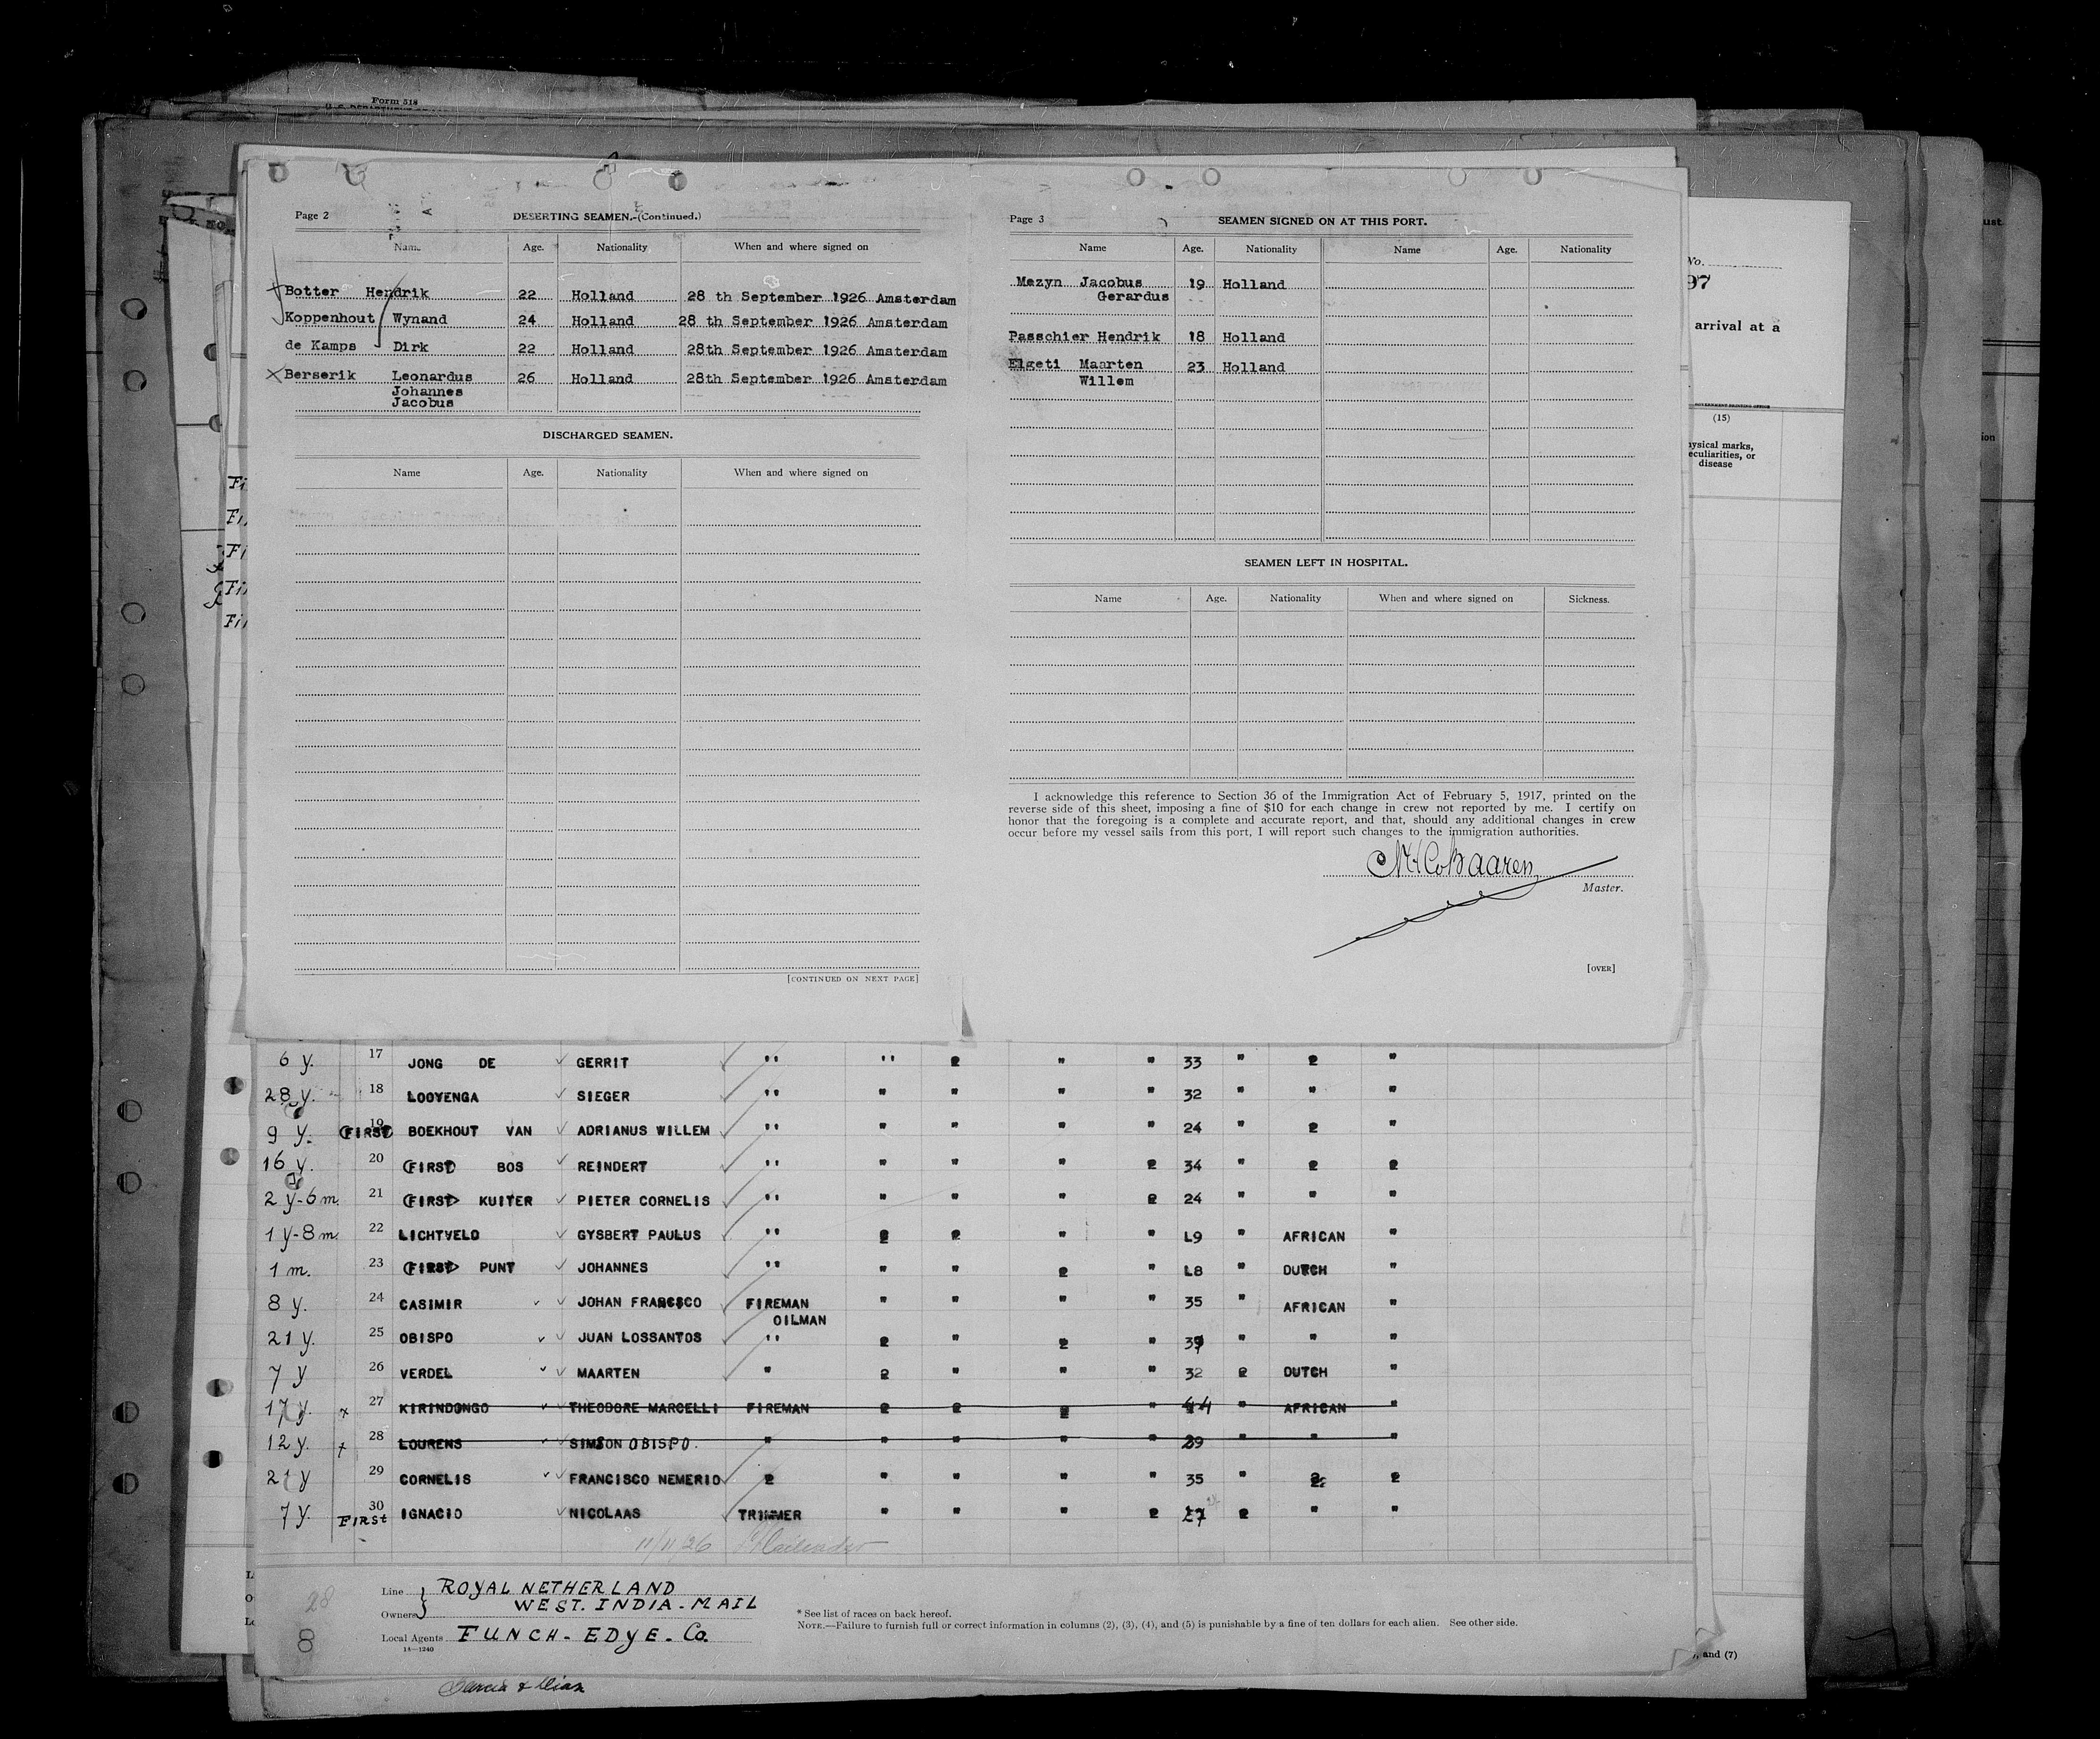 Form 518
Page 2
DESERTING SEAMEN.-(Continued.)
Name Age. Nationality When and where signed on
Botter Hendrik 22 Holland 28 th September 1926 Amsterdam
Koppenhout Wynand 24 Holland 28 th September 1926 Amsterdam
de Kamps Dirk 22 Holland 28th September 1926 Amsterdam
Berserik Leonardus 26 Holland 28th September 1926 Amsterdam
Johannes
Jacobus
DISCHARGED SEAMEN.
Name Age. Nationality When and where signed on
[CONTINUED ON NEXT PAGE]
Page 3
SEAMEN SIGNED ON AT THIS PORT.
Name Age. Nationality Name Age. Nationality
Mezyn Jacobus 19 Holland
Gerardus
Passchier Hendrik 18 Holland
Elgeti Maarten 23 Holland
Willem
SEAMEN LEFT IN HOSPITAL.
Name Age. Nationality When and where signed on Sickness.
I acknowledge this reference to Section 36 of the Immigration Act of February 5, 1917, printed on the
reverse side of this sheet, imposing a fine of $10 for each change in crew not reported by me. I certify on
honor that the foregoing is a complete and accurate report, and that, should any additional changes in crew
occur before my vessel sails from this port, I will report such changes to the immigration authorities.
Master.
[OVER]
No.
97
arrival at a
(15)
disease
6 y. 17 JONG DE GERRIT " " " " 33 " "
28 y. 18 LOOYENGA SIEGER " " " " " 32 " " "
9 y. 19 (FIRST) BOEKHOUT VAN ADRIANUS WILLEM " " " " " 24 " "
16 y. 20 (FIRST) BOS REINDERT " " " " 34 "
2 y-6 m. 21 (FIRST) KUITER PIETER CORNELIS " " " " 24 " " "
1 y-8 m. 22 LICHTVELD GYSBERT PAULUS " " " L9 " AFRICAN "
1 m. 23 (FIRST) PUNT JOHANNES " " " " L8 " DUTCH "
8 y. 24 CASIMIR JOHAN FRANCSCO FIREMAN " " " " 35 " AFRICAN "
OILMAN
21 y. 25 OBISPO JUAN LOSSANTOS " " " " " "
7 y 26 VERDEL MAARTEN " " " " 32 DUTCH "
17 y. x 27 KIRINDONGO THEODORE MARCELLI FIREMAN " 44 " AFRICAN "
12 y. x 28 LOURENS SIMSON OBISPO. " " " " " 39 " " "
21 y 29 CORNELIS FRANCISCO NEMERIO " " " " 35 "
7 y. 30 FIRST IGNACIO NICOLAAS TRIMMER " " " 27 " "
11/11/26
28
8
Line ROYAL NETHERLAND
Owners WEST. INDIA. MAIL
Local Agents FUNCH - EDYE. Co.
14—1240
* See list of races on back hereof.
NOTE.—Failure to furnish full or correct information in columns (2), (3), (4), and (5) is punishable by a fine of ten dollars for each alien. See other side.
, and (7)
Garcia & Diaz